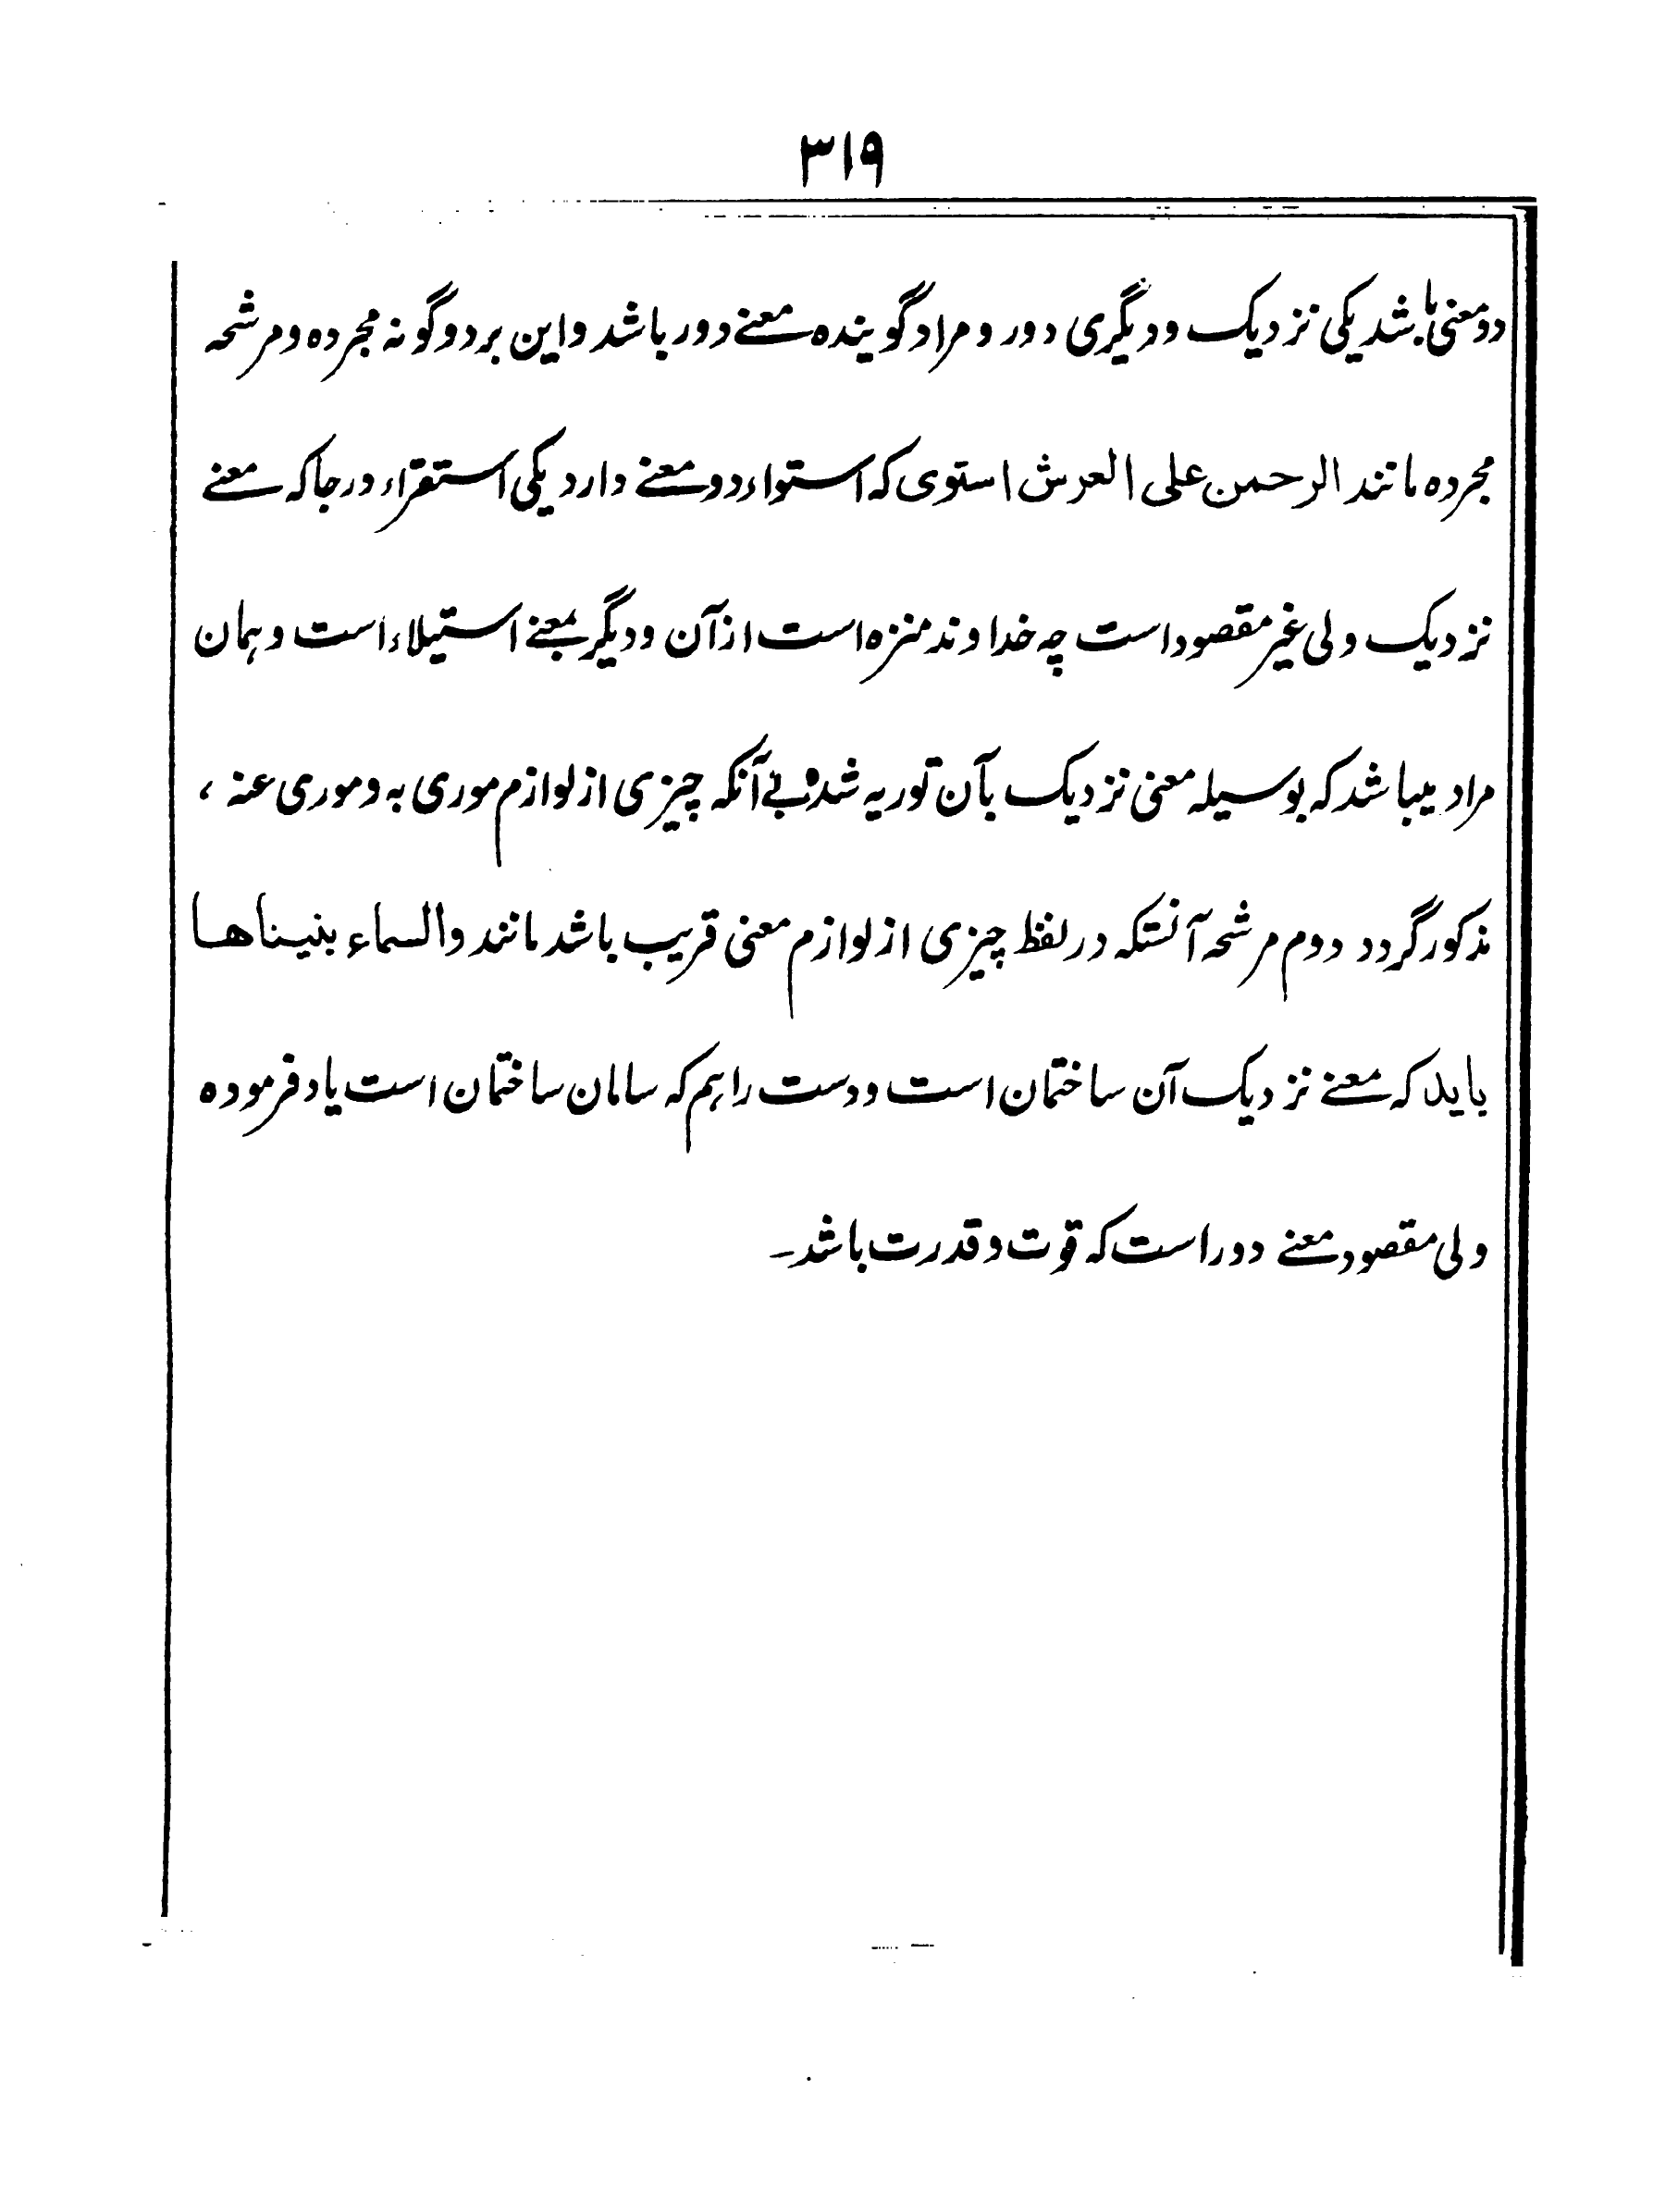 ۳۱۹
دو معنی باشد یکی نزدیک و دیگری دور و مراد گوینده معنے دور باشد و این بر دو گونه مجرده و مرشحه
مجرده مانند الرحمن علی العرش استوی که استواء دو معنے دارد یکی استقراء در جا که معنے
نزدیک ولی غیر مقصود است چه خداوند منزه است از آن و دیگر بمعنے استیلاء است و همان
مراد میباشد که بوسیله معنی نزدیک بآن توریه شده بی آنکه چیزی از لوازم موری به و موری عنه ،
مذکور گردد دوم مرشحه آنستکه در لفظ چیزی از لوازم معنی قریب باشد مانند والسماء بنیناها
باید که معنے نزدیک آن ساختمان است و دست را هم که سامان ساختمان است یاد فرموده
ولی مقصود معنے دور است که قوت و قدرت باشد-